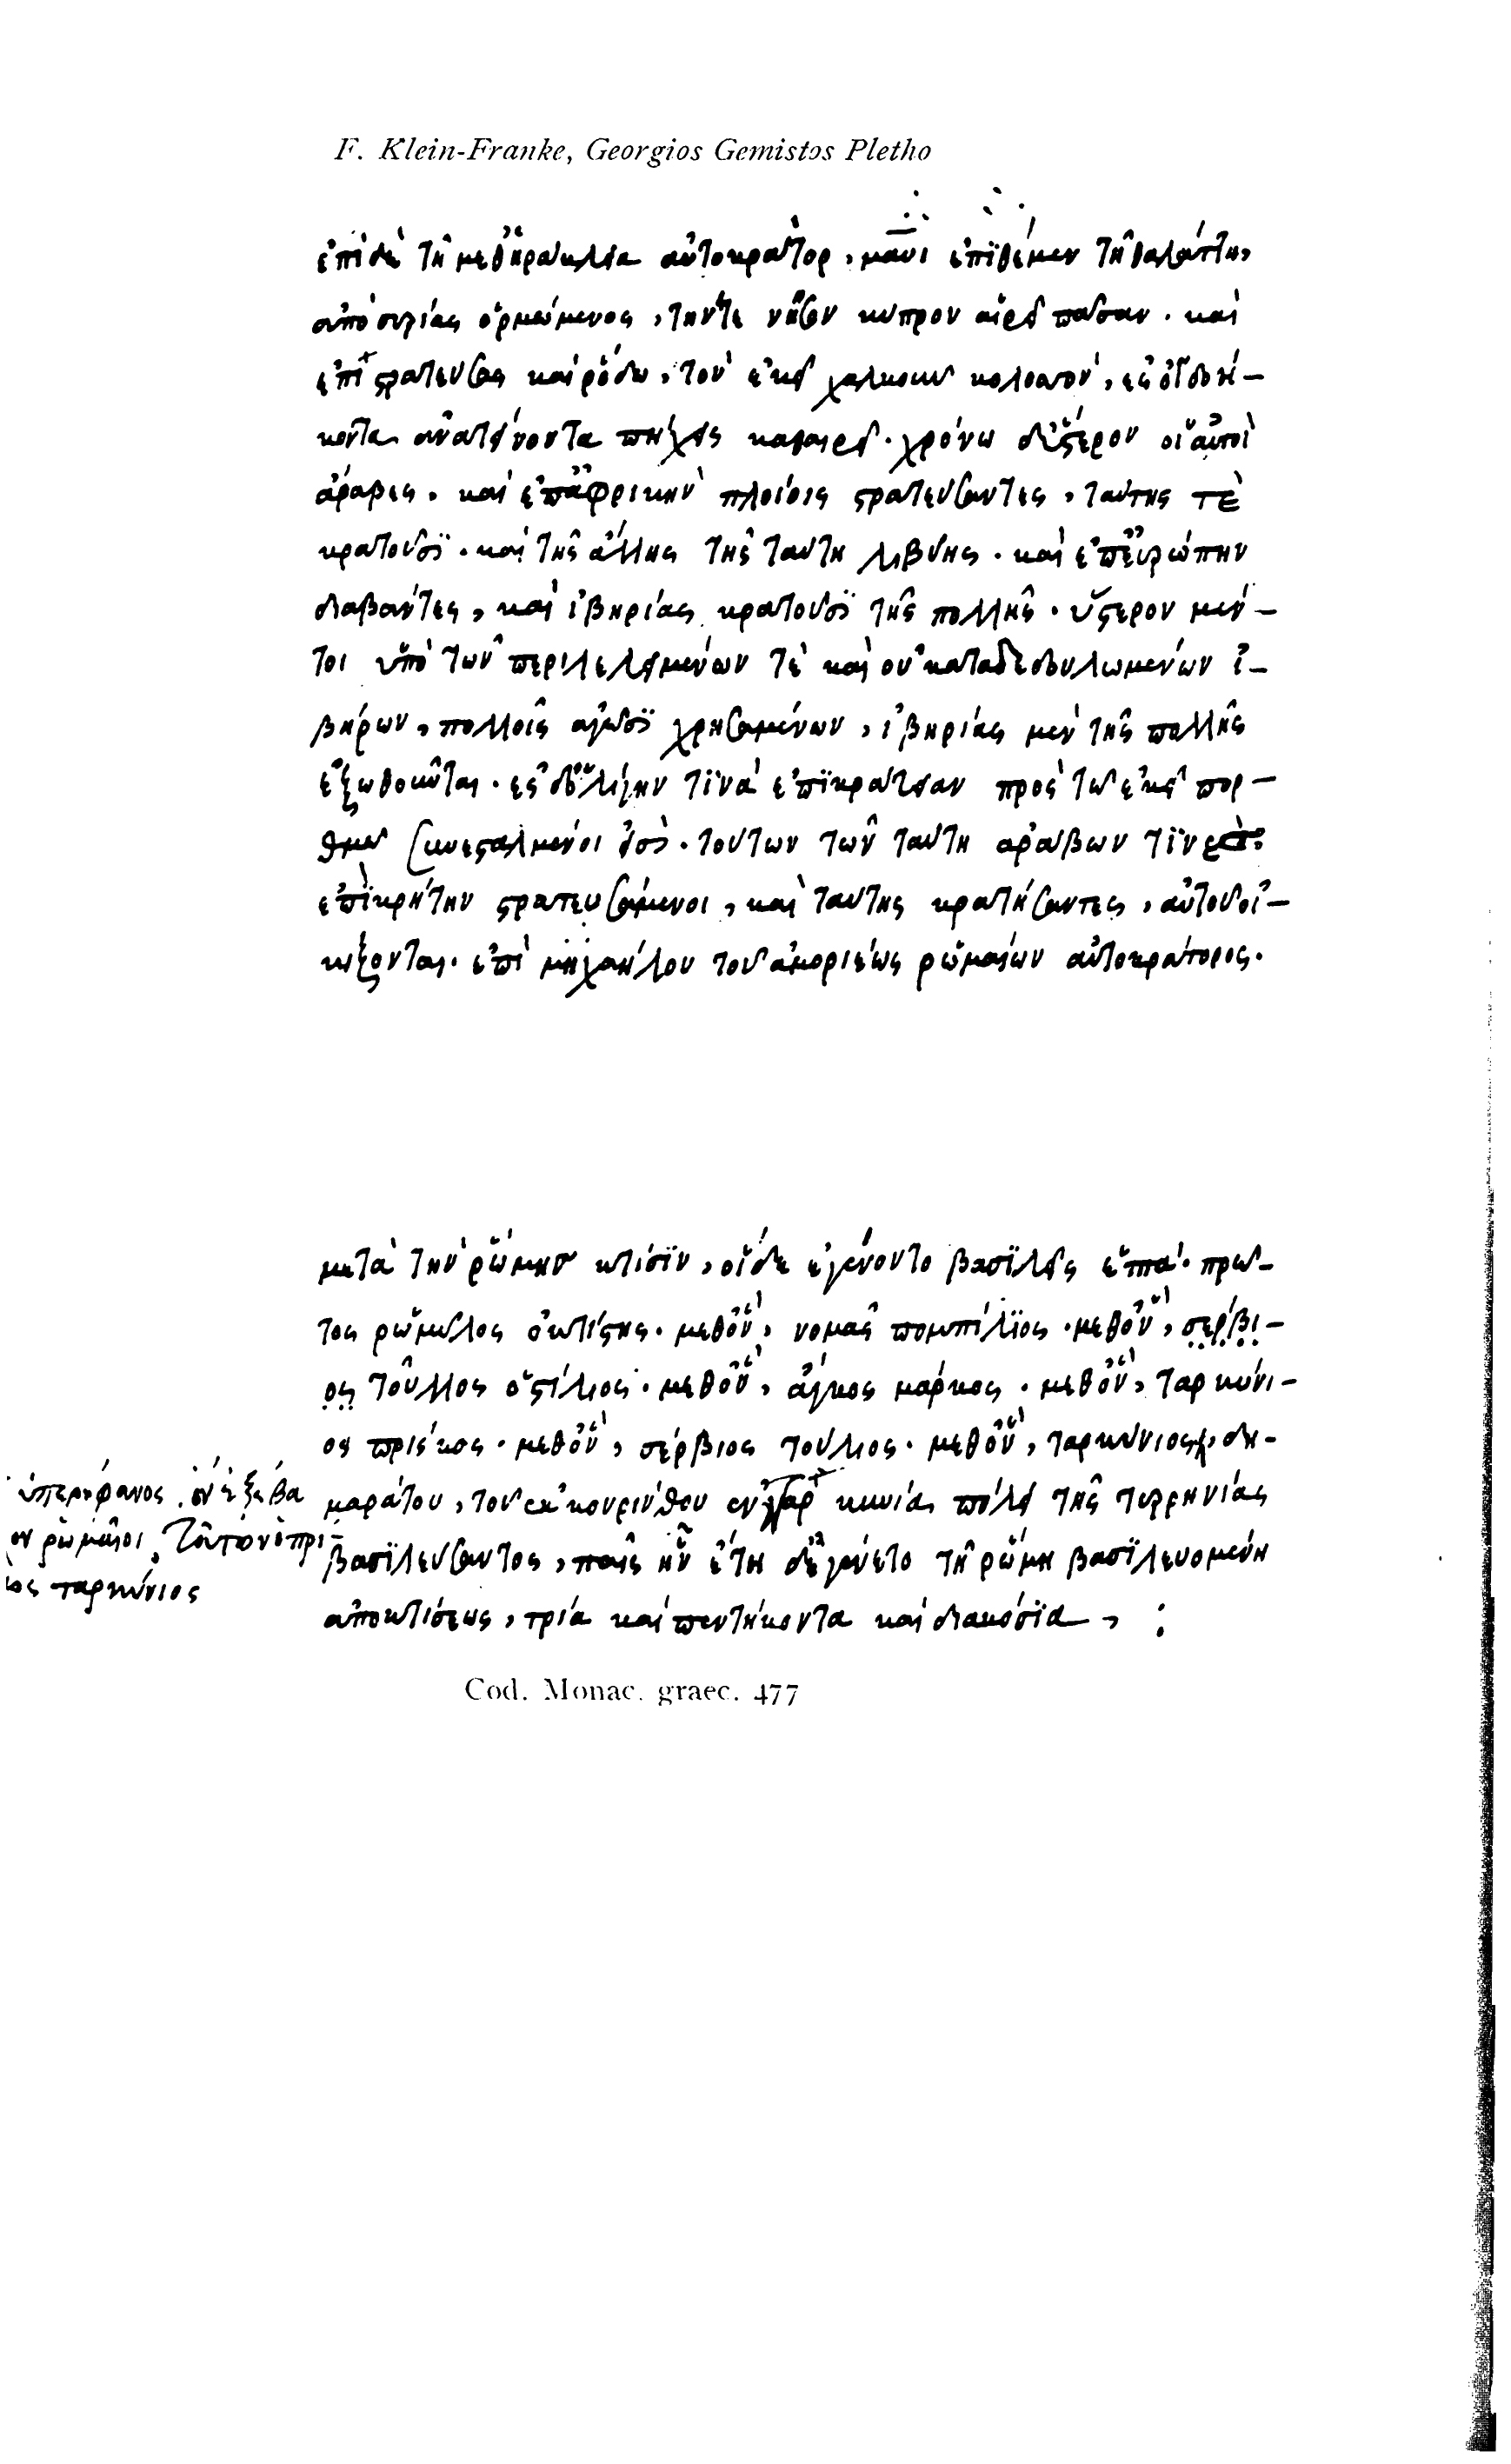 F. Klein-Franke, Georgios Gemistos Pletho
ἐπὶ δὲ τῆ μεθ' ἡρακλεία αὐτοκράτορ, ἐπιθέμεν τῆ θαλάττη,
ἀπὸ συρίας ὁρμώμενος, τήν τε νῆσον κύπρον αἱρεῖ πᾶσαν. καὶ
ἐπιστρατεύσας καὶ ρόδω, τὸν ἐκεῖ χαλκοῦν κολοσσὸν, ἐς ὀγδοή-
κοντα ἀνατείνοντα πήχεις καθαιρεῖ. χρόνω δ' ὕστερον οἱ αὐτοὶ
ἄραβες, καὶ ἐπ' ἀφρικὴν πλοίοις στρατεύσαντες, ταύτης τὲ
κρατοῦσϊ. καὶ τῆς ἄλλης τῆς ταύτη λιβύης. καὶ ἐπ' εὐρώπην
διαβάντες, καὶ ἰβηρίας κρατοῦσϊ τῆς πολλῆς. ὕστερον μέν-
τοι ὑπὸ τῶν περιλελειμένων τὲ καὶ οὐ καταδεδουλωμένων ἰ-
βήρων, πολλοῖς ἀγῶσϊ χρησαμένων, ἰβηρίας μὲν τῆς πολλῆς
ἐξωθοῦνται. ἐς δ' ὀλίγην τϊνὰ ἐπϊκράτειαν πρὸς τῶ ἐκεῖ πορ-
θμῶ συνεσταλμένοι εἰσὶ. τούτων τῶν ταύτη ἀράβων τϊνὲς
ἐπὶ κρήτην στρατευσάμενοι, καὶ ταύτης κρατήσαντες, αὐτοῦ οἰ-
κίζονται. ἐπὶ μιχαήλου τοῦ ἀμοριέως ρωμαίων αὐτοκράτορος.
μετὰ τὴν ρώμην κτίσϊν, οἵδε ἐγένοντο βασϊλεῖς ἑπτά. πρῶ-
τος ρωμύλος ὁ κτίστης. μεθ' ὃν, νομᾶς πομπίλϊος. μεθ' ὃν, σερβι-
ος τοῦλλος ὁστίλιος. μεθ' ὃν, ἄγκος μάρκος. μεθ' ὃν, ταρκύνι-
ος πρίσκος. μεθ' ὃν, σέρβιος τούλιος. μεθ' ὃν, ταρκύνιος, δη-
μαράτου, τοῦ ἐκ κουρίνθου ἐν πόλει τῆς τυρρηνίας
βασϊλεύσαντος, παῖς ἦν ἔτη δ' ἐγένετο τῆ ρώμη βασϊλευομένη
ἀπὸ κτίσεως, τρία καὶ πεντήκοντα καὶ διακόσϊα, :
ὑπερήφανος ὃν ἐξέβα
ον ρωμαῖοι
ος ταρκύνιος
Cod. Monac. graec. 477